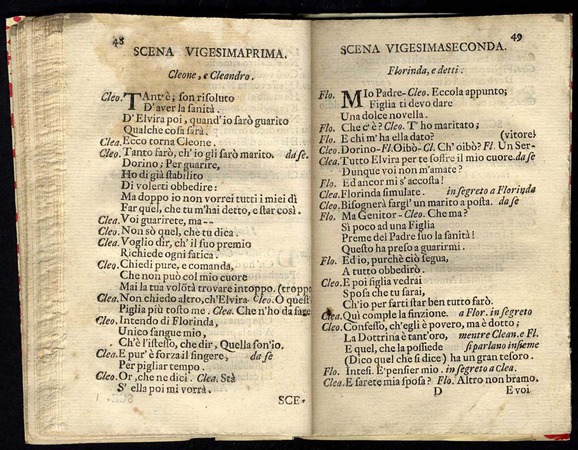 48
SCENA VIGESIMAPRIMA.
Cleone, e Cleandro.
Cleo. TAnt'è; son risoluto
D'aver la sanità.
D'Elvira poi, quand'io sarò guarito
Qualche cosa sarà.
Clea. Ecco torna Cleone.
Cleo. Tanto sarò, ch'io gli sarò marito. da se.
Dorino; Per guarire,
Ho di già stabilito
Di volerti obbedire:
Ma doppo io non vorrei tutti i miei dì
Far quel, che tu m'hai detto, e star così.
Clea. Voi guarirete, ma--
Cleo. Non sò quel, che tu dica.
Clea. Voglio dir, ch'il suo premio
Richiede ogni fatica.
Cleo. Chiedi pure, e comanda,
Che non può col mio cuore
Mai la tua volõtà trovare intoppo. (troppo
Clea. Non chiedo altro, ch'Elvira. Cleo. O quest
Piglia più tosto me. Clea. Che n'ho da fare
Cleo. Intendo di Florinda,
Unico sangue mio,
Ch'è l'istesso, che dir, Quella son'io.
Clea. E pur'è forza il fingere, da se
Per pigliar tempo.
Cleo. Or, che ne dici. Clea. Stà
S' ella poi mi vorrà.
SCE-
49
SCENA VIGESIMASECONDA.
Florinda, e detti.
Flo. MIo Padre- Cleo. Eccola appunto;
Figlia ti devo dare
Una dolce novella.
Flo. Che c'è? Cleo. T' ho maritato;
Flo. E chi m' ha ella dato? (vitore)
Cleo. Dorino- Fl. Oibò- Cl. Ch' oibò? Fl. Un Ser-
Clea. Tutto Elvira per te soffre il mio cuore. da se
Dunque voi non m'amate?
Flo. Ed ancor mi s' accosta!
Clea. Florinda simulate. in segreto a Florinda
Cleo. Bisognerà fargl' un marito a posta. da se
Flo. Ma Genitor- Cleo. Che ma?
Sì poco ad una Figlia
Preme del Padre suo la sanità!
Questo ha preso a guarirmi.
Flo. Ed io, purchè ciò segua,
A tutto obbedirò.
Cleo. E poi figlia vedrai
Sposa che tu sarai,
Ch'io per farti star ben tutto farò.
Clea. Quì comple la finzione. a Flor. in segreto
Cleo. Confesso, ch'egli è povero, ma è dotto;
La Dottrina è tant'oro, mentre Clean. e Fl.
E quel, che la possiede si parlano insieme
(Dico quel che si dice) ha un gran tesoro.
Flo. Intesi. E'pensier mio. in segreto a Clea.
Clea. E sarete mia sposa? Flo. Altro non bramo.
D E voi